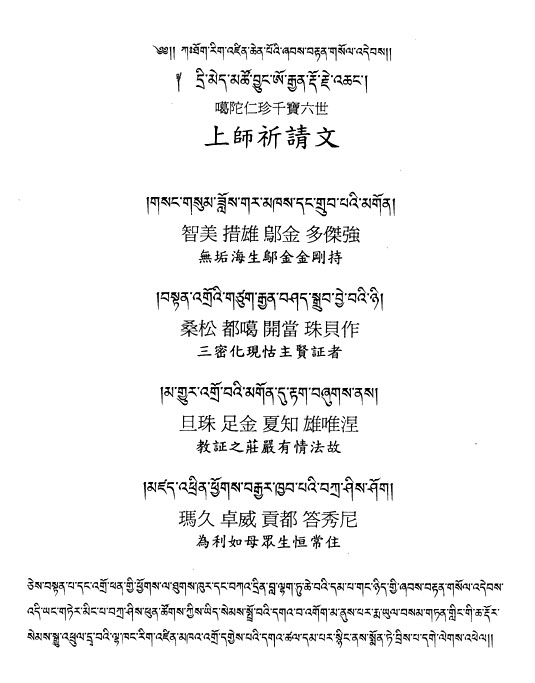 ༄༅།། ཀཿཐོག་རིག་འཛིན་ཆེན་པོའི་ཞབས་བརྟན་གསོལ་འདེབས།།
༈ དྲི་མེད་མཚོ་བྱུང་ཨོ་རྒྱན་རྡོ་རྗེ་འཆང་།
噶陀仁珍千寶六世
上師祈請文
།གསང་གསུམ་ཟློས་གར་མཁས་དང་གྲུབ་པའི་མགོན།
智美 措雄 鄔金 多傑強
無垢海生鄔金金剛持
།བསྟན་འགྲོའི་གཙུག་རྒྱན་བཤད་སྒྲུབ་བྱེ་བའི་ཉི།
桑松 都噶 開當 珠貝作
三密化現怙主賢証者
།མ་གྱུར་འགྲོ་བའི་མགོན་དུ་རྟག་བཞུགས་ནས།
旦珠 足金 夏知 雄唯涅
教証之莊嚴有情法故
།མཛད་འཕྲིན་ཕྱོགས་བརྒྱར་ཁྱབ་པའི་བཀྲ་ཤིས་ཤོག།
瑪久 卓威 貢都 答秀尼
為利如母眾生恒常住
ཅེས་བསྟན་པ་དང་འགྲོ་ཕན་གྱི་ཕྱོགས་ལ་ཐུགས་ཁུར་དང་བཀའ་དྲིན་བླ་ལྷག་ཏུ་ཆེ་བའི་དམ་པ་གང་ཉིད་ཀྱི་ཞབས་བརྟན་གསོལ་འདེབས་
འདི་ཡང་གཏེར་མིང་པ་བཀྲ་ཤིས་ཕུན་ཚོགས་ཀྱིས་ཡིད་སེམས་སྤྲོ་བའི་དགའ་བ་འགོག་མ་ནུས་པར་རྨ་ཡུལ་བསམ་གཏན་གླིང་གི་ཆ་རྡོར་
སེམས་སྒྱུ་འཕྲུལ་དྲྭ་བའི་ལྷ་ཁང་རིག་འཛིན་མཁའ་འགྲོ་དགྱེས་པའི་དགའ་ཚལ་དམ་པར་སྙིང་ནས་སྨོན་ཏེ་བྲིས་པ་དགེ་ལེགས་འཕེལ།།